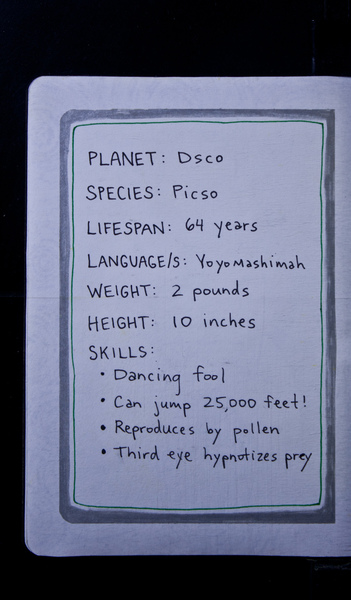 PLANET: Dsco
SPECIES: Picso
LIFESPAN: 64 years
LANGUAGE/S: YoyoMashimah
WEIGHT: 2 pounds
HEIGHT: 10 inches
SKILLS:
• Dancing fool
• Can jump 25,000 feet!
• Reproduces by pollen
• Third eye hypnotizes prey